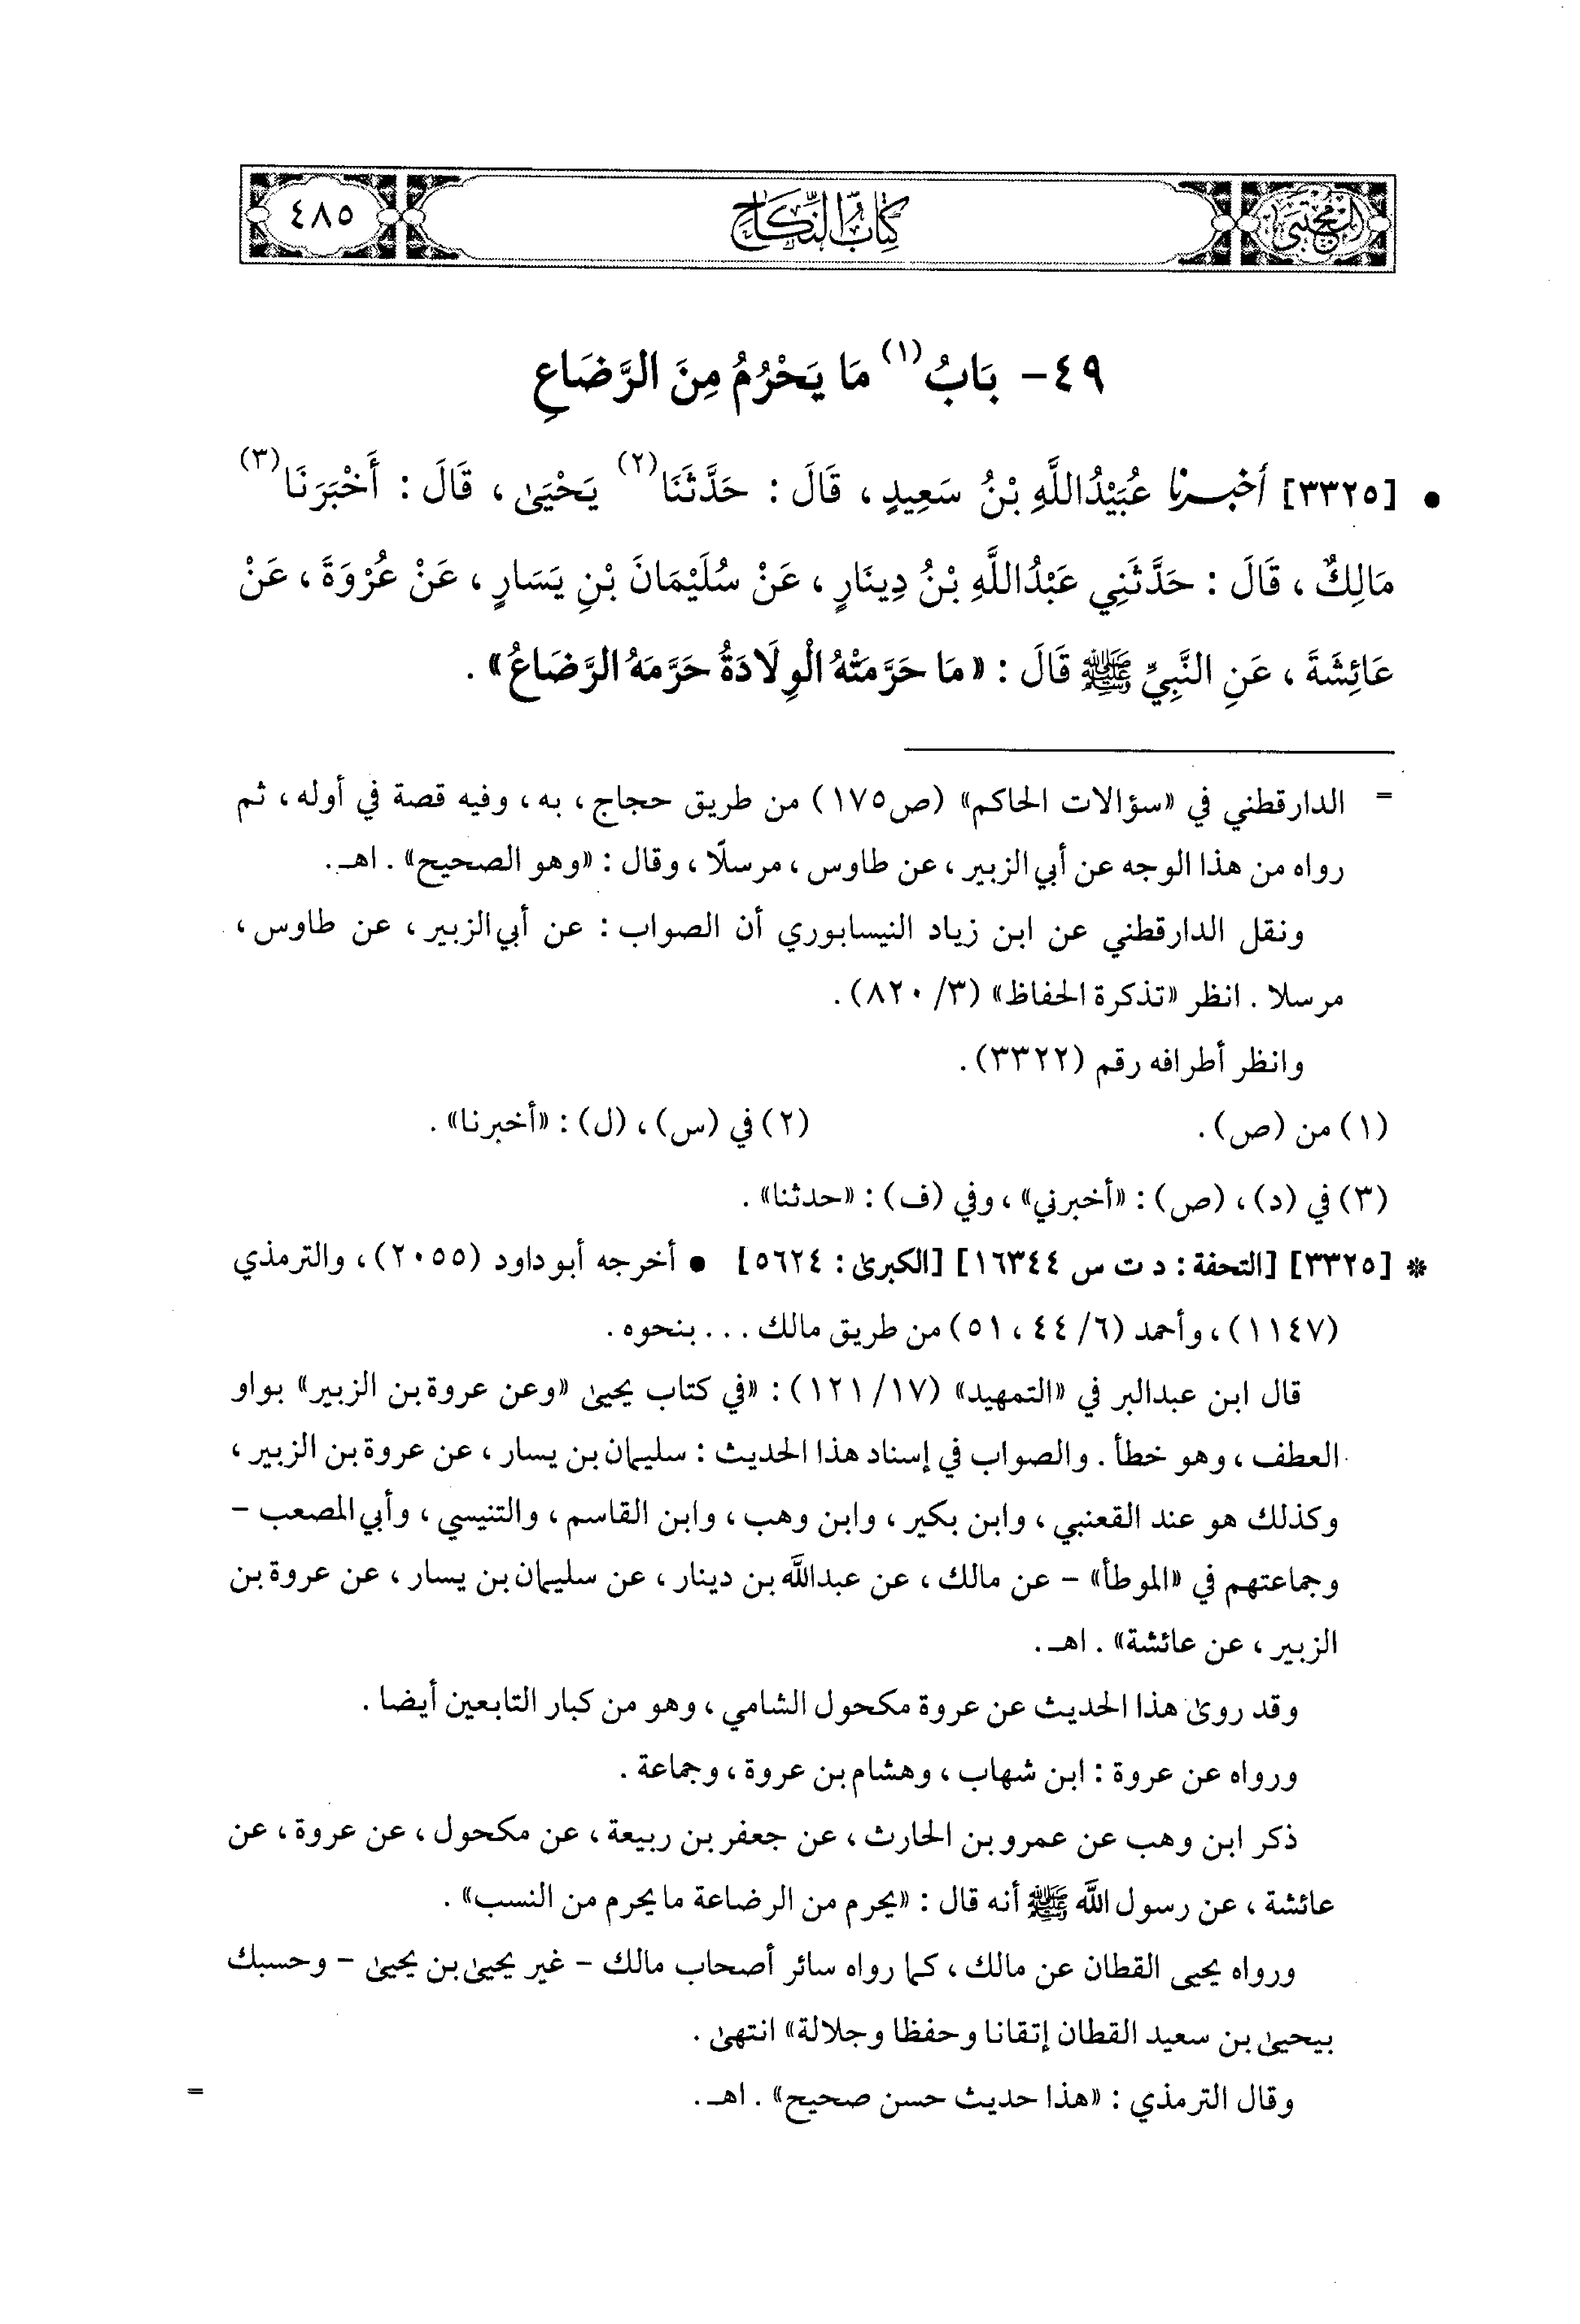 المجتبى
كتاب النكاح
٤٨٥
٤٩- بَابُ (١) مَا يَحْرُمُ مِنَ الرَّضَاعِ
• [٣٣٢٥] أخبرنا عُبَيْدُاللَّهِ بْنُ سَعِيدٍ ، قَالَ : حَدَّثَنَا (٢) يَحْيَىٰ ، قَالَ : أَخْبَرَنَا (٣)
مَالِكٌ ، قَالَ : حَدَّثَنِي عَبْدُاللَّهِ بْنُ دِينَارٍ ، عَنْ سُلَيْمَانَ بْنِ يَسَارٍ ، عَنْ عُرْوَةَ ، عَنْ
عَائِشَةَ ، عَنِ النَّبِيِّ ﷺ قَالَ : «مَا حَرَّمَتْهُ الْوِلَادَةُ حَرَّمَهُ الرَّضَاعُ» .
= الدارقطني في «سؤالات الحاكم» (ص١٧٥) من طريق حجاج ، به ، وفيه قصة في أوله ، ثم
رواه من هذا الوجه عن أبي الزبير ، عن طاوس ، مرسلًا ، وقال : «وهو الصحيح» . اهـ .
ونقل الدارقطني عن ابن زياد النيسابوري أن الصواب : عن أبي الزبير ، عن طاوس ،
مرسلا . انظر «تذكرة الحفاظ» (٣/ ٨٢٠) .
وانظر أطرافه رقم (٣٣٢٢) .
(١) من (ص) . (٢) في (س) ، (ل) : «أخبرنا» .
(٣) في (د) ، (ص) : «أخبرني» ، وفي (ف) : «حدثنا» .
* [٣٣٢٥] [التحفة : د ت س ١٦٣٤٤] [الكبرىٰ : ٥٦٢٤] • أخرجه أبو داود (٢٠٥٥) ، والترمذي
(١١٤٧) ، وأحمد (٦/ ٤٤ ، ٥١) من طريق مالك . . . بنحوه .
قال ابن عبدالبر في «التمهيد» (١٧/ ١٢١) : «في كتاب يحيىٰ «وعن عروة بن الزبير» بواو
العطف ، وهو خطأ . والصواب في إسناد هذا الحديث : سليمان بن يسار ، عن عروة بن الزبير ،
وكذلك هو عند القعنبي ، وابن بكير ، وابن وهب ، وابن القاسم ، والتنيسي ، وأبي المصعب -
وجماعتهم في «الموطأ» - عن مالك ، عن عبدالله بن دينار ، عن سليمان بن يسار ، عن عروة بن
الزبير ، عن عائشة» . اهـ .
وقد روىٰ هذا الحديث عن عروة مكحول الشامي ، وهو من كبار التابعين أيضا .
ورواه عن عروة : ابن شهاب ، وهشام بن عروة ، وجماعة .
ذكر ابن وهب عن عمرو بن الحارث ، عن جعفر بن ربيعة ، عن مكحول ، عن عروة ، عن
عائشة ، عن رسول الله ﷺ أنه قال : «يحرم من الرضاعة ما يحرم من النسب» .
ورواه يحيى القطان عن مالك ، كما رواه سائر أصحاب مالك - غير يحيىٰ بن يحيىٰ - وحسبك
بيحيىٰ بن سعيد القطان إتقانا وحفظا وجلالة» انتهىٰ .
وقال الترمذي : «هذا حديث حسن صحيح» . اهـ . =